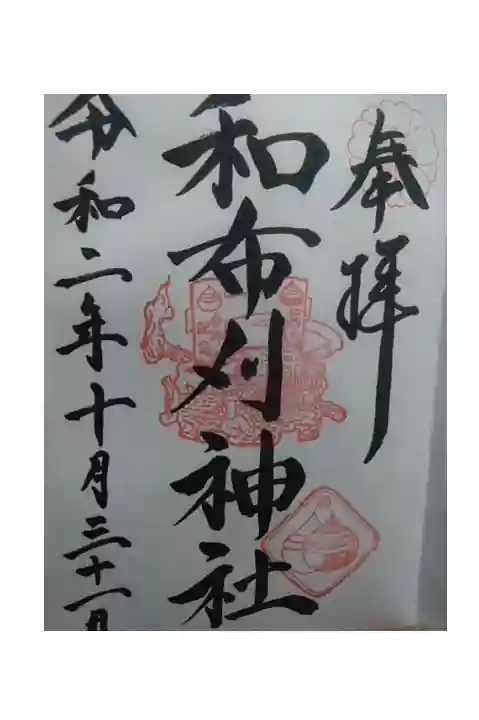 奉拝
和布刈神社
令和二年十月三十一日